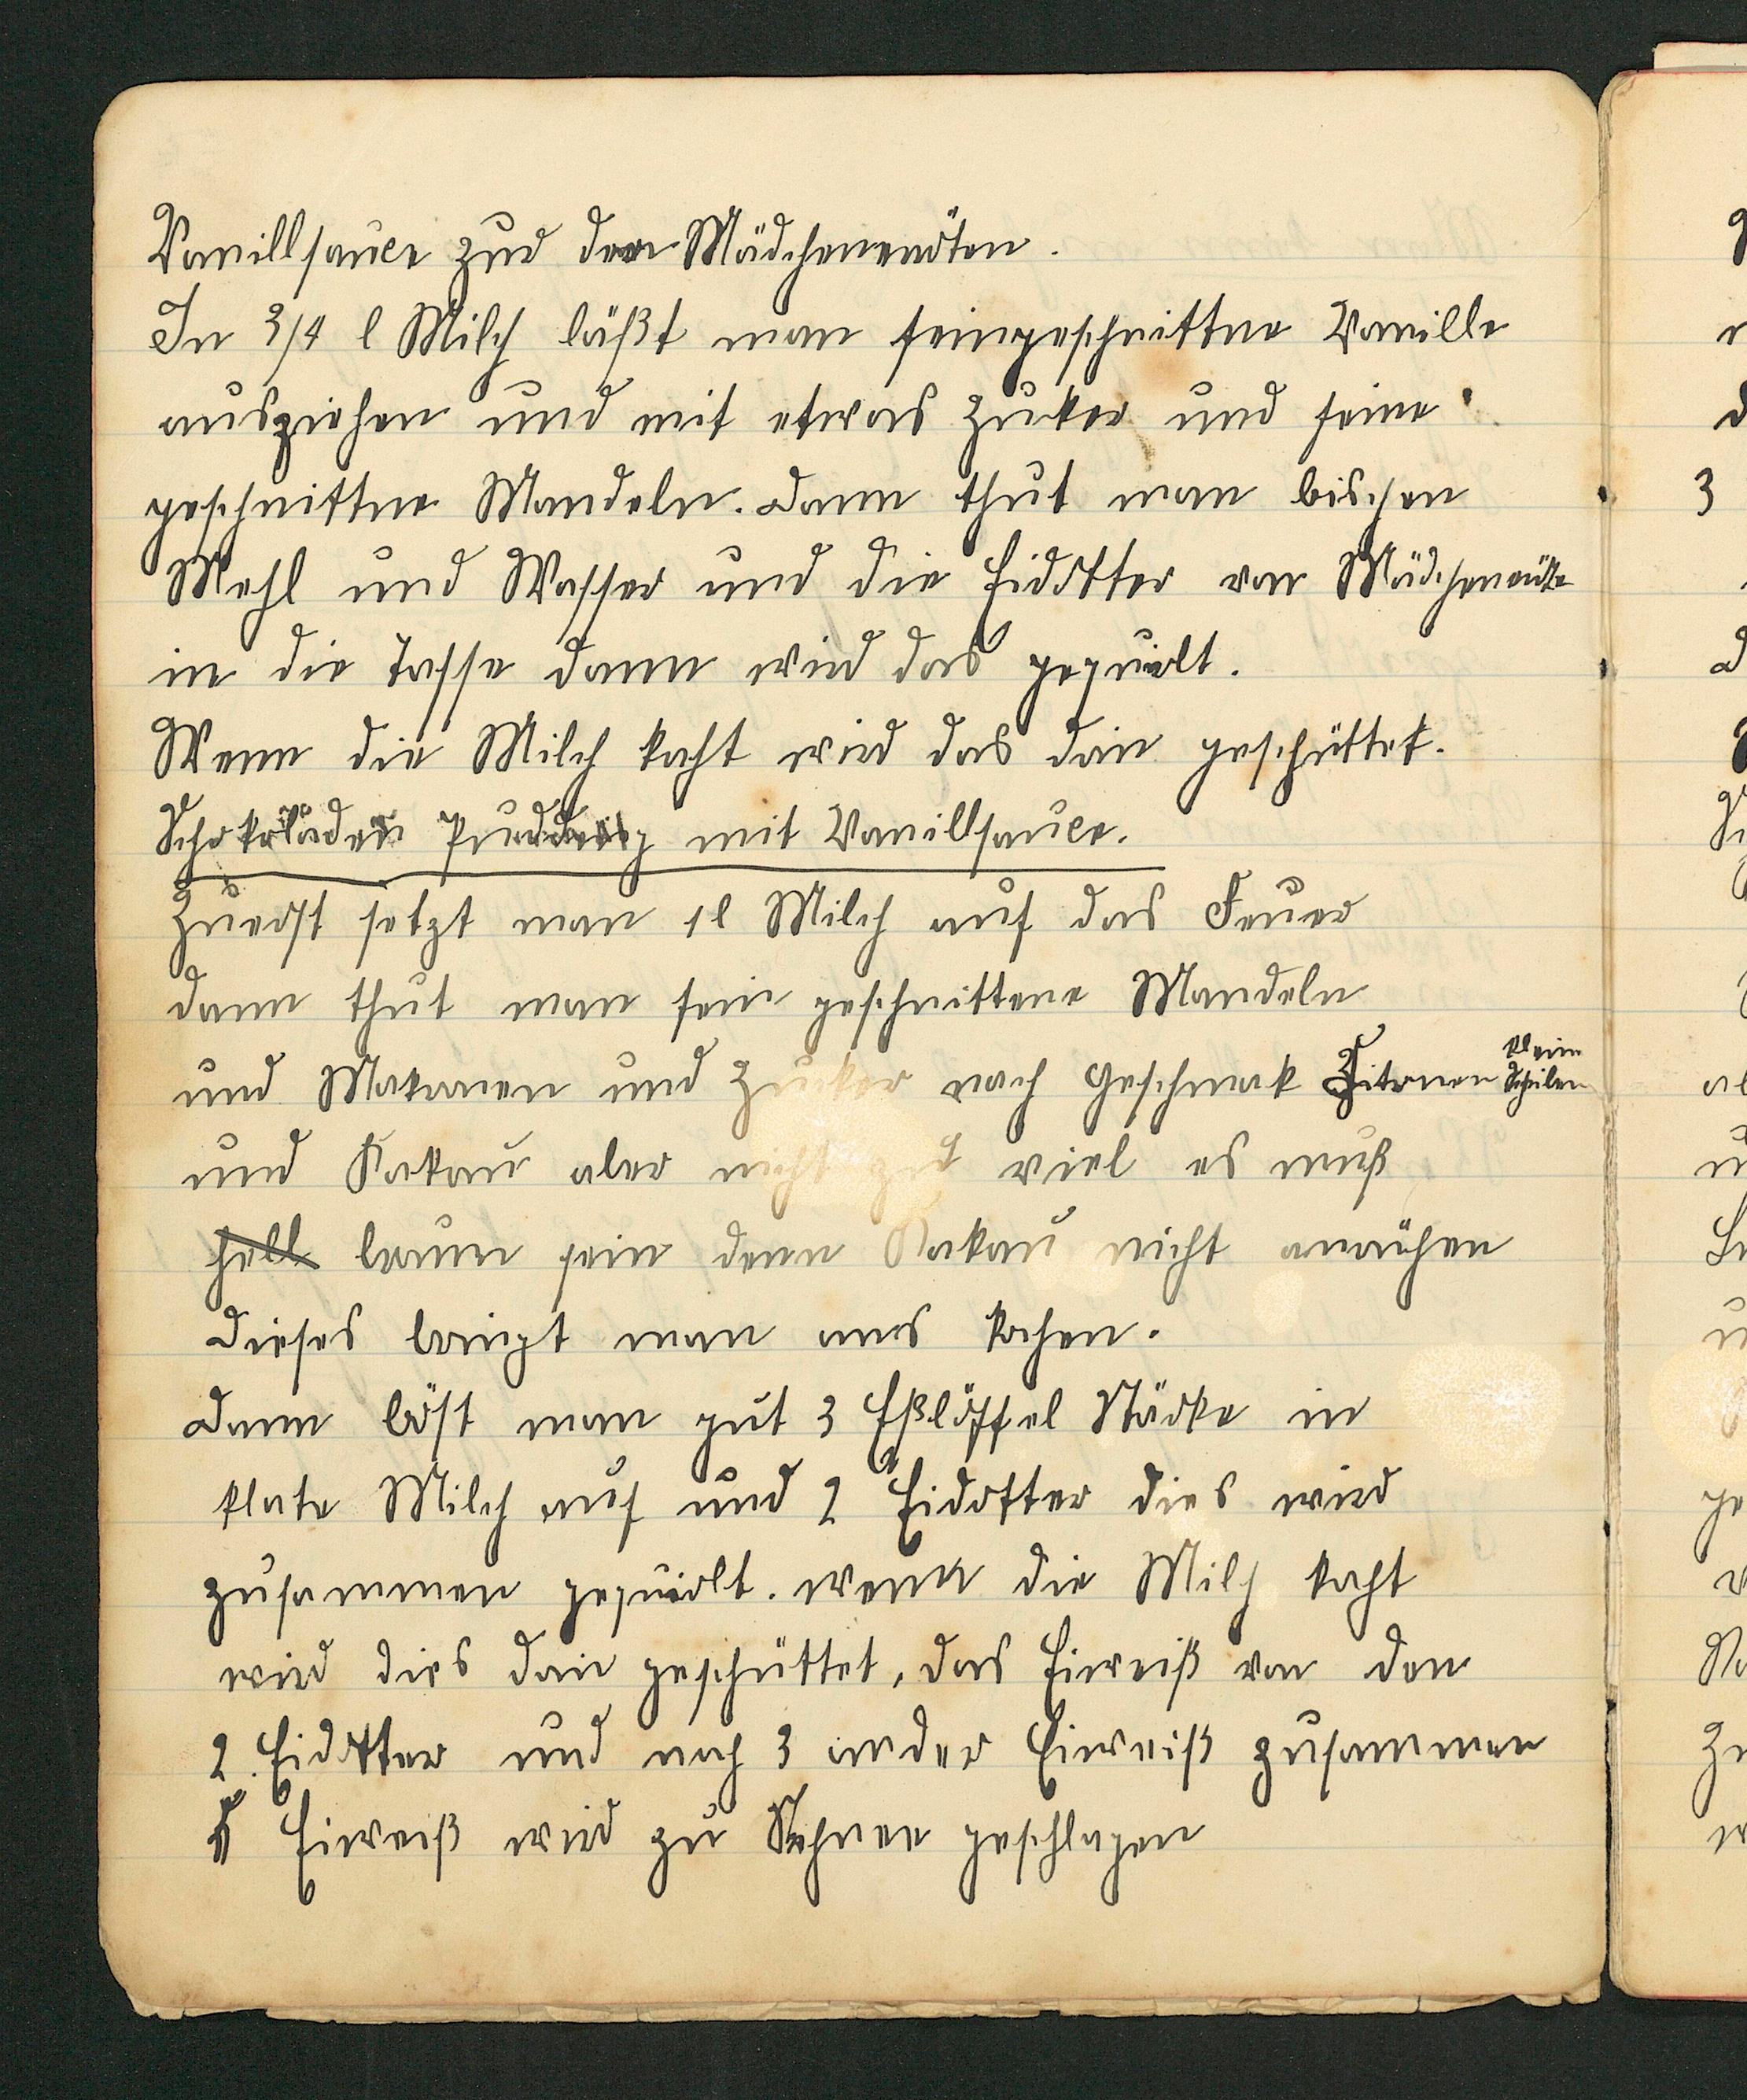 Vanillsauce zur der Mädchenröten.
In 3/4 l Milch läßt man feingeschnittne Vanille
ausziehen und mit etwas Zuker und feine
geschnittne Mandeln. Dann thut man bischen
Mehl und Wasser und die Eidotter von Mädchenröte
in die Tasse dann wird das gequirlt.
Wenn die Milch kocht wird das drin geschüttet.
Schokoladen Pudding mit Vanillsauce.
Zuerst setzt man 1 l Milch auf das Feuer
dann thut man fein geschnittene Mandeln
und Makronen und Zuker nach Geschmak Zitronen klein Schalen
und Kakau aber nicht zu viel es muß
hell braun sein denn Kakau nicht anrühren
Dieses bringt man ans kochen.
Dann löst man gut 3 Eßlöffel Stärke in
klate Milch auf und 2 Eidotter dies wird
zusammen gequirlt. wenn die Milch kocht
wird dies drin geschüttet, das Eiweiß von den
2 Eidotter und noch 3 ander Eiweiß zusammen
5 Eiweiß wird zu Schnee geschlagen
3